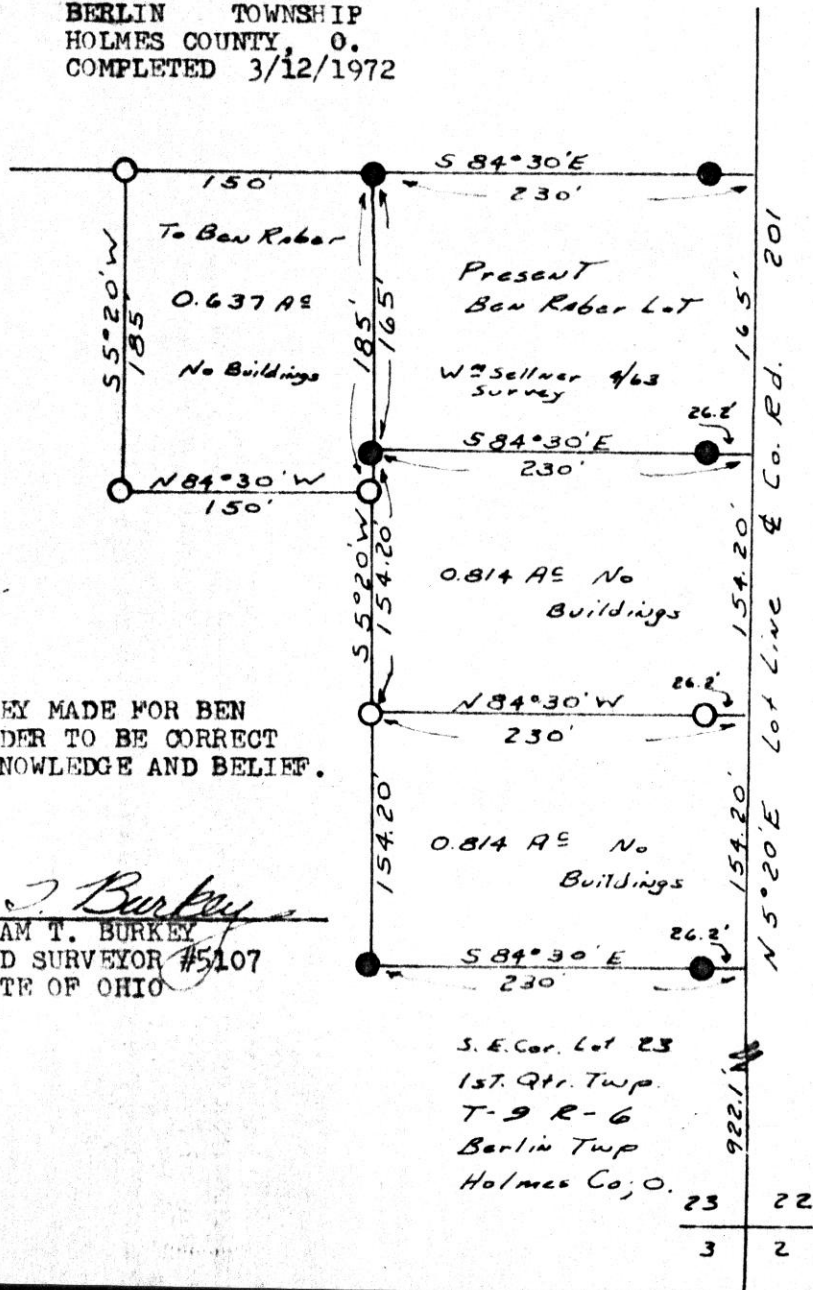 BERLIN TOWNSHIP
HOLMES COUNTY, O.
COMPLETED 3/12/1972
S 84°30'E
150'
230'
To Ben Raber
S 5°20'W
185'
0.637 Ac
No Buildings
185'
165'
Present
Ben Raber Lot
Wm Sellner 4/63
Survey
165'
26.2'
S 84°30'E
230'
N 84°30'W
150'
S 5°20'W
154.20'
0.814 Ac No
Buildings
154.20'
26.2'
N 84°30'W
230'
EY MADE FOR BEN
DER TO BE CORRECT
NOWLEDGE AND BELIEF.
154.20'
0.814 Ac No
Buildings
154.20'
N 5°20'E Lot Line ℄ Co. Rd. 201
T. Burkey
AM T. BURKEY
D SURVEYOR #5107
TE OF OHIO
26.2'
S 84°30'E
230'
S.E. Cor. Lot 23
1st. Qtr. Twp.
T-9 R-6
Berlin Twp
Holmes Co; O.
922.1'
23 22
3 2